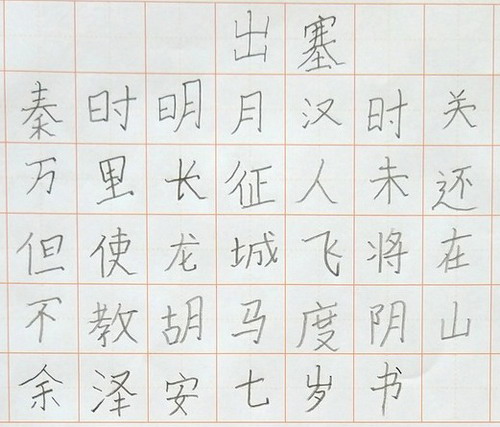 出塞
秦时明月汉时关
万里长征人未还
但使龙城飞将在
不教胡马度阴山
余泽安七岁书